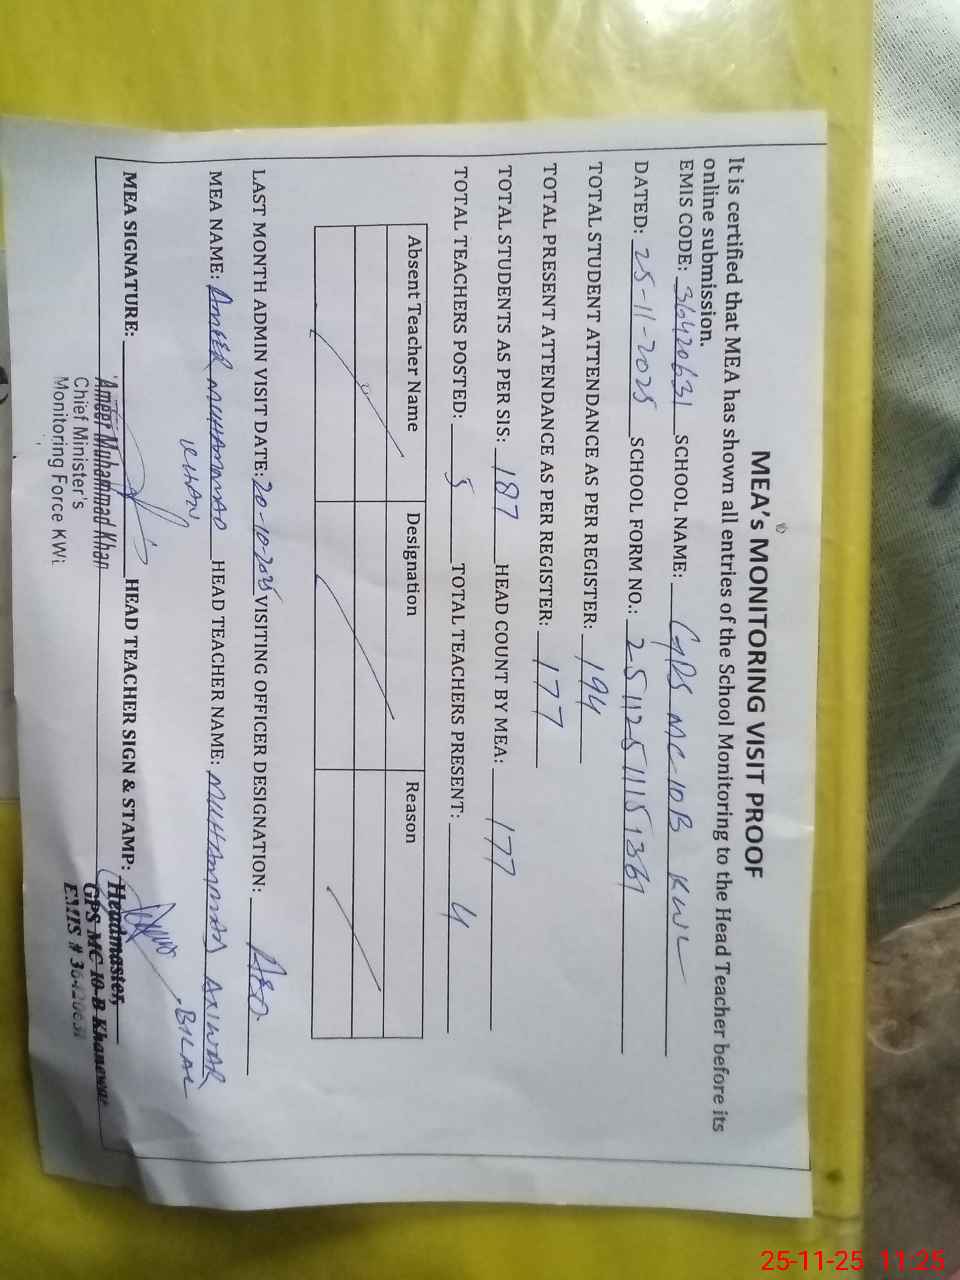 MEA's MONITORING VISIT PROOF
It is certified that MEA has shown all entries of the School Monitoring to the Head Teacher before its
online submission.
EMIS CODE: 36420631 SCHOOL NAME: GPS MC-10B KWL
DATED: 25-11-2025 SCHOOL FORM NO.:
TOTAL STUDENT ATTENDANCE AS PER REGISTER: 194
TOTAL PRESENT ATTENDANCE AS PER REGISTER: 177
TOTAL STUDENTS AS PER SIS: 187 HEAD COUNT BY MEA: 177
TOTAL TEACHERS POSTED: 5 TOTAL TEACHERS PRESENT: 4
Absent Teacher Name Designation Reason
LAST MONTH ADMIN VISIT DATE: 20-10-2025 VISITING OFFICER DESIGNATION:
MEA NAME: AMEER MUHAMMAD HEAD TEACHER NAME: MUHAMMAD ANWAR
KHAN BILAL
MEA SIGNATURE: HEAD TEACHER SIGN & STAMP:
Ameer Muhammad Khan
Chief Minister's
Monitoring Force KWL
Headmaster,
GPS MC 10-B Khanewal
EMIS # 36420631
25-11-25 11:25